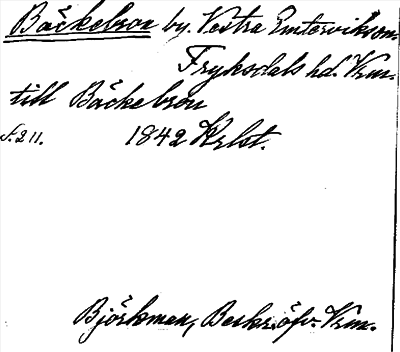 Bäckebron by. Västra Emtervik sn.
Fryksdals hd. Vrm.
till Bäckebron
s. 211. 1842 Krlst.
Björkman, Beskr. öfv. Vrm.